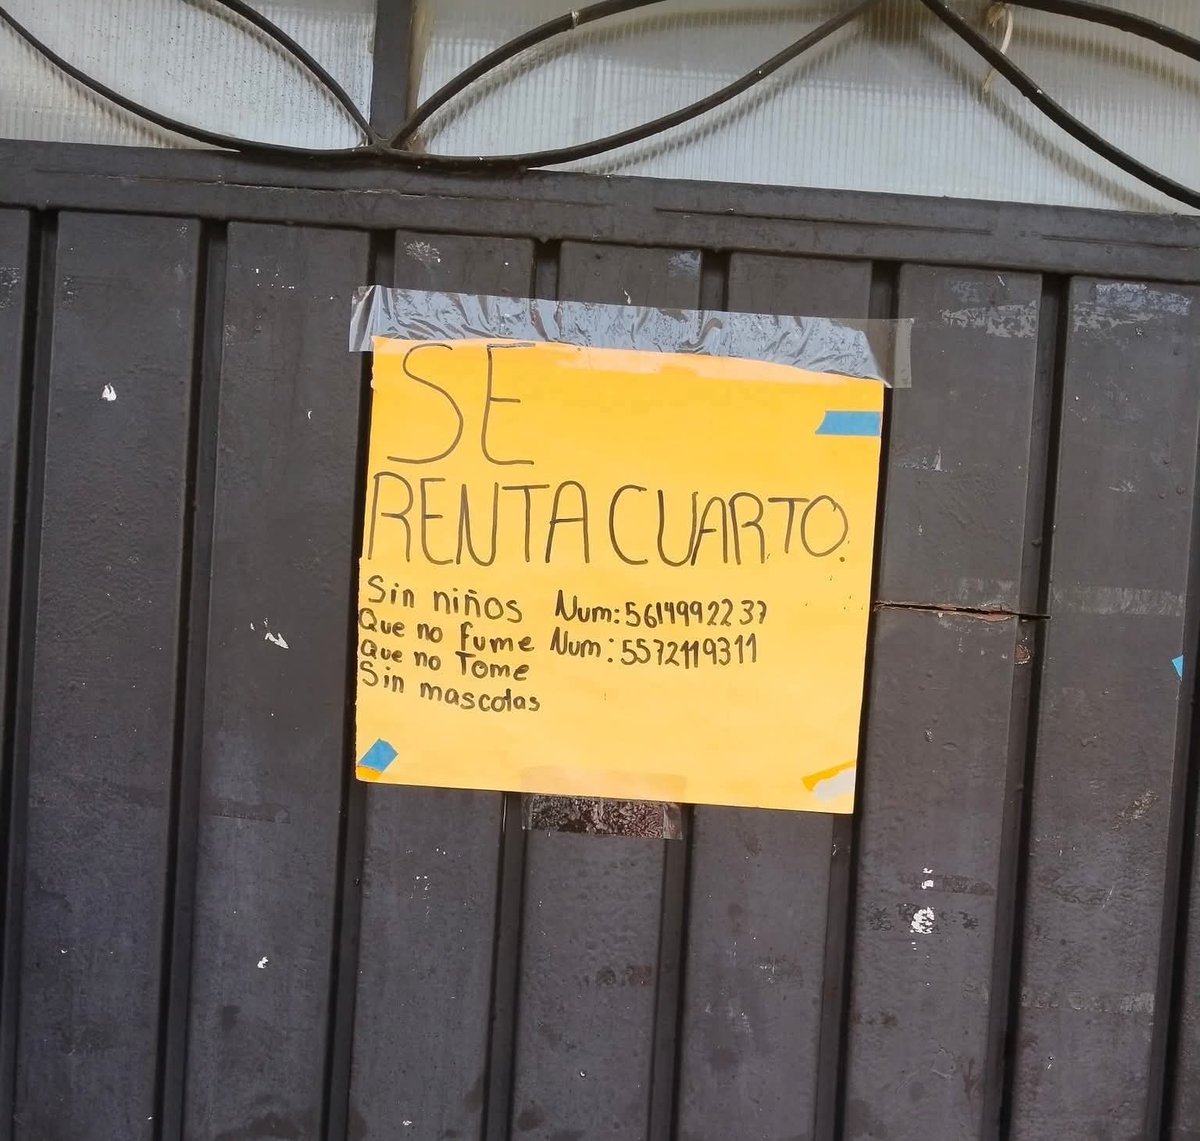 SE
RENTA CUARTO.
Sin niños Num: 5614992237
Que no fume Num: 5572119311
Que no Tome
Sin mascotas